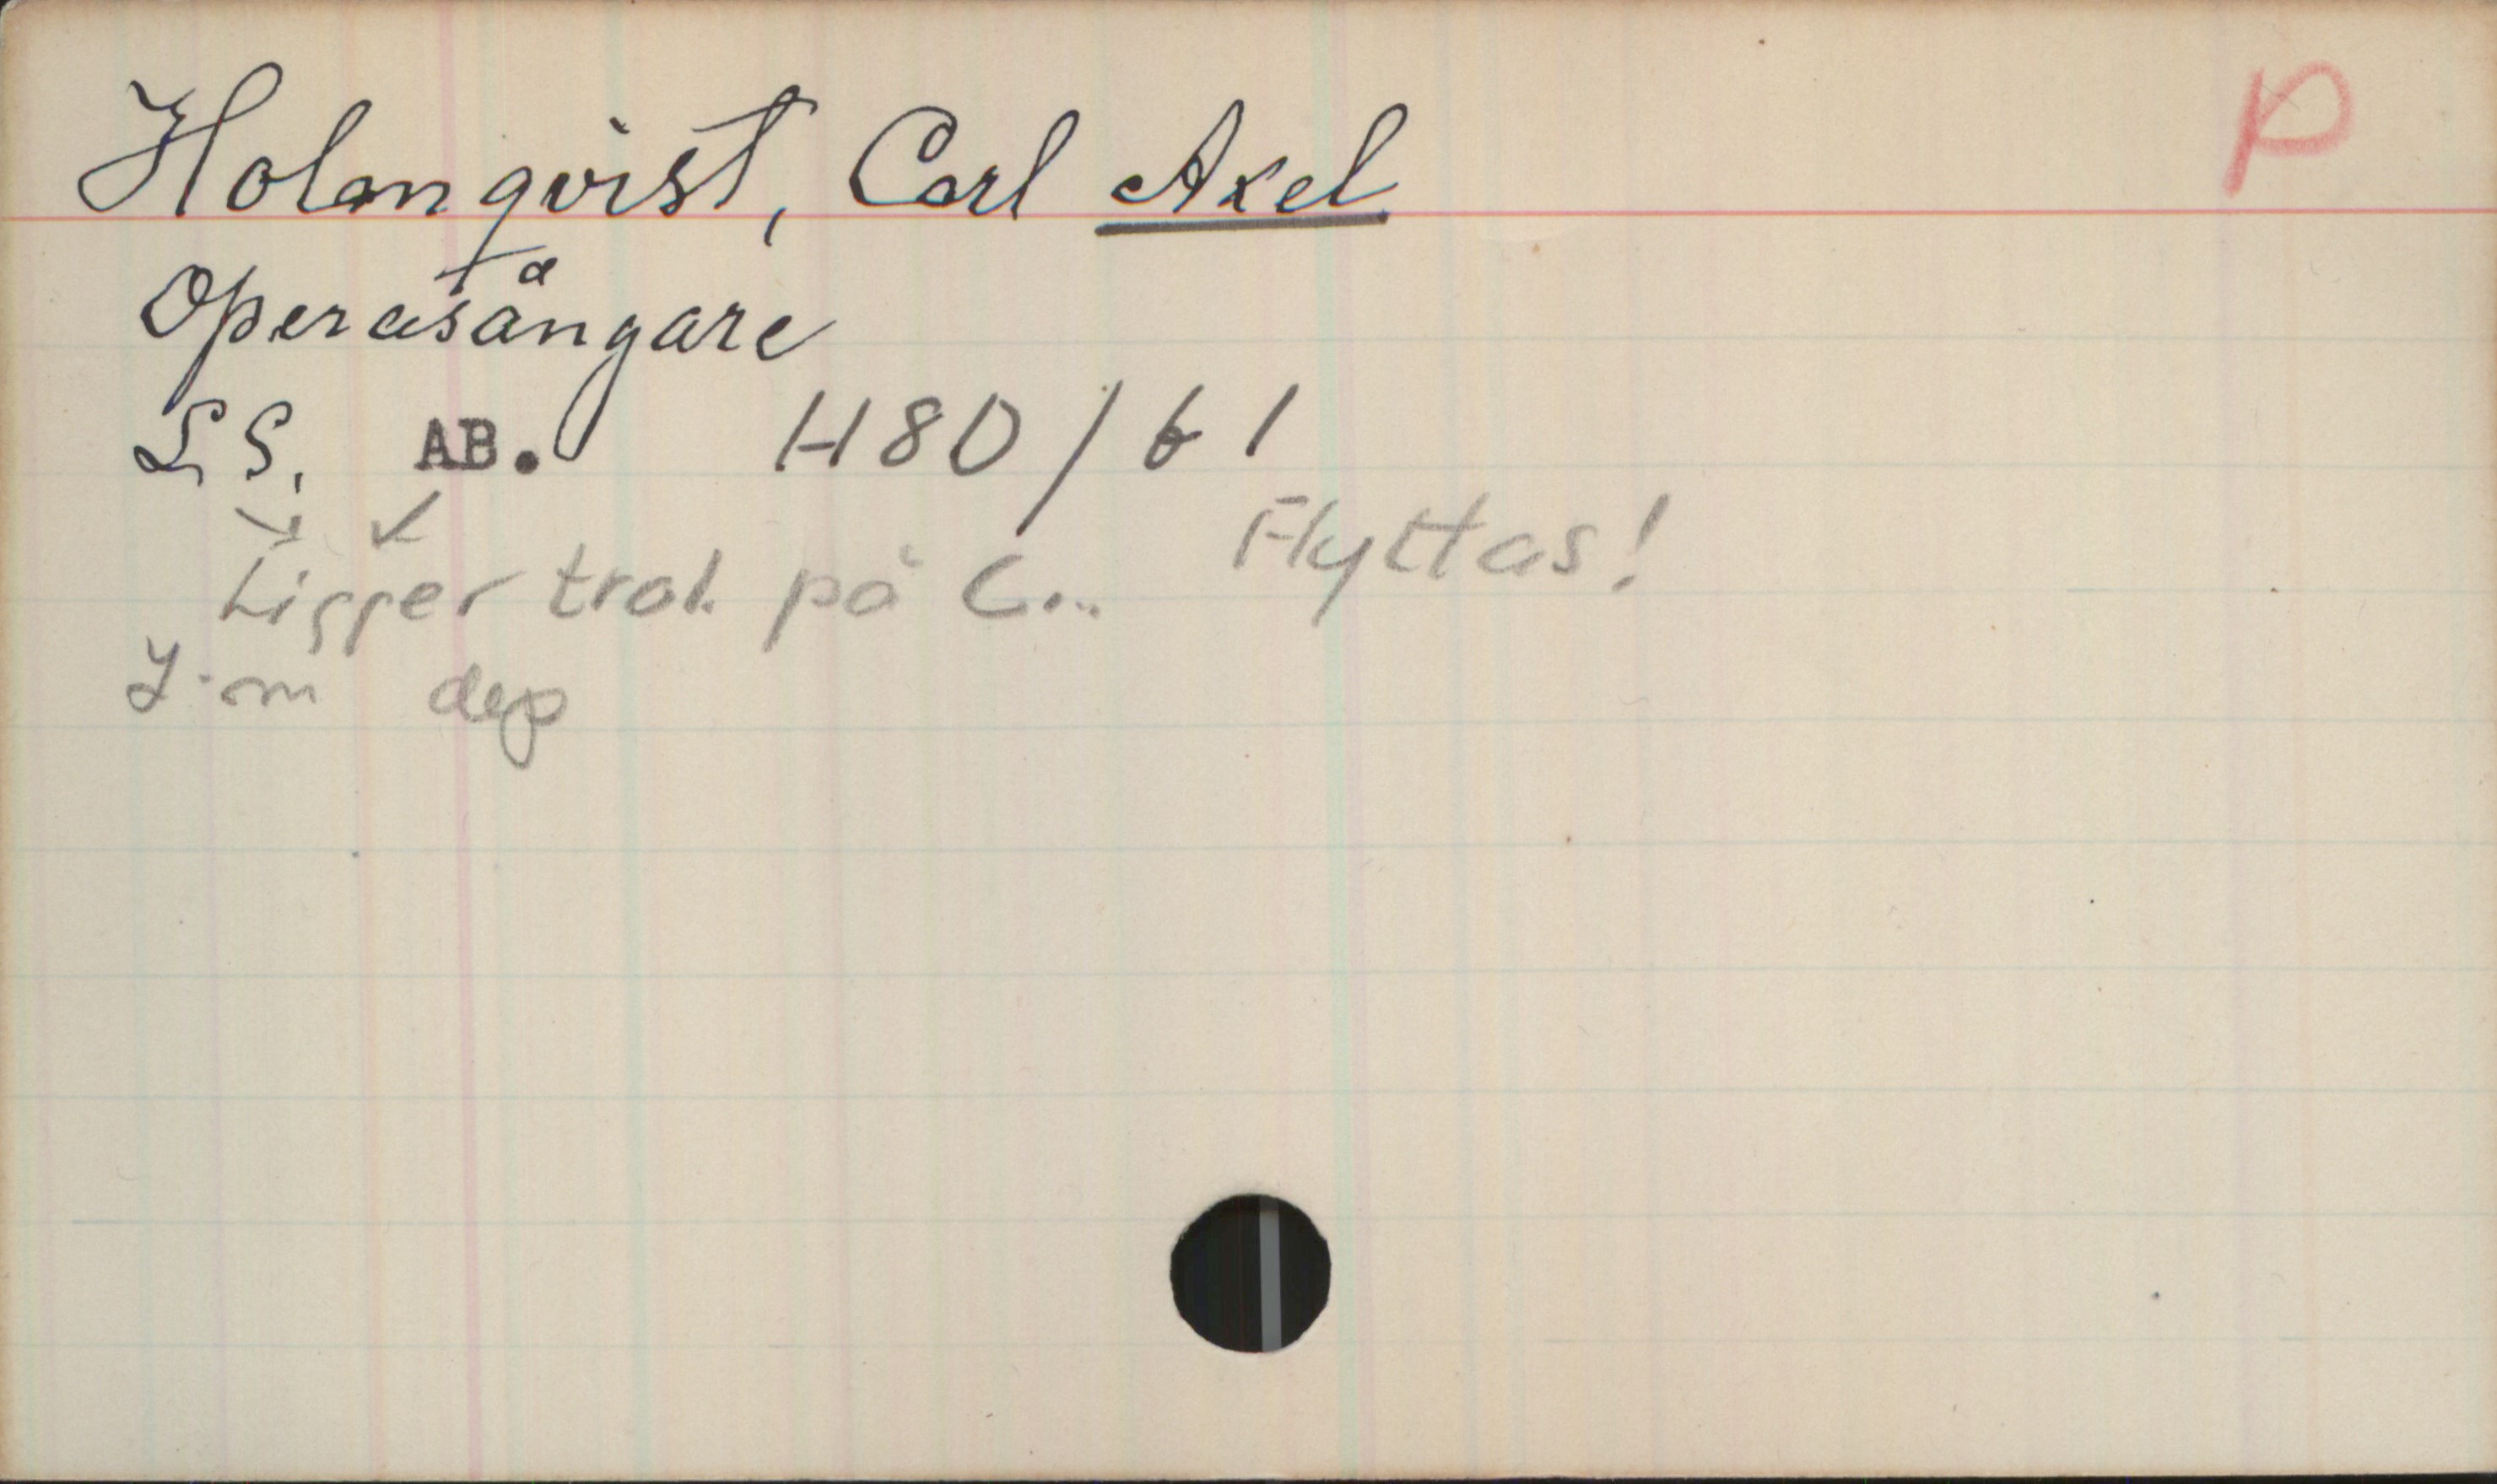 Holmqvist, Carl Axel P
Operasångare
L S. AB. H80/61
Ligger trol. på C... Flyttas!
Y.m dep